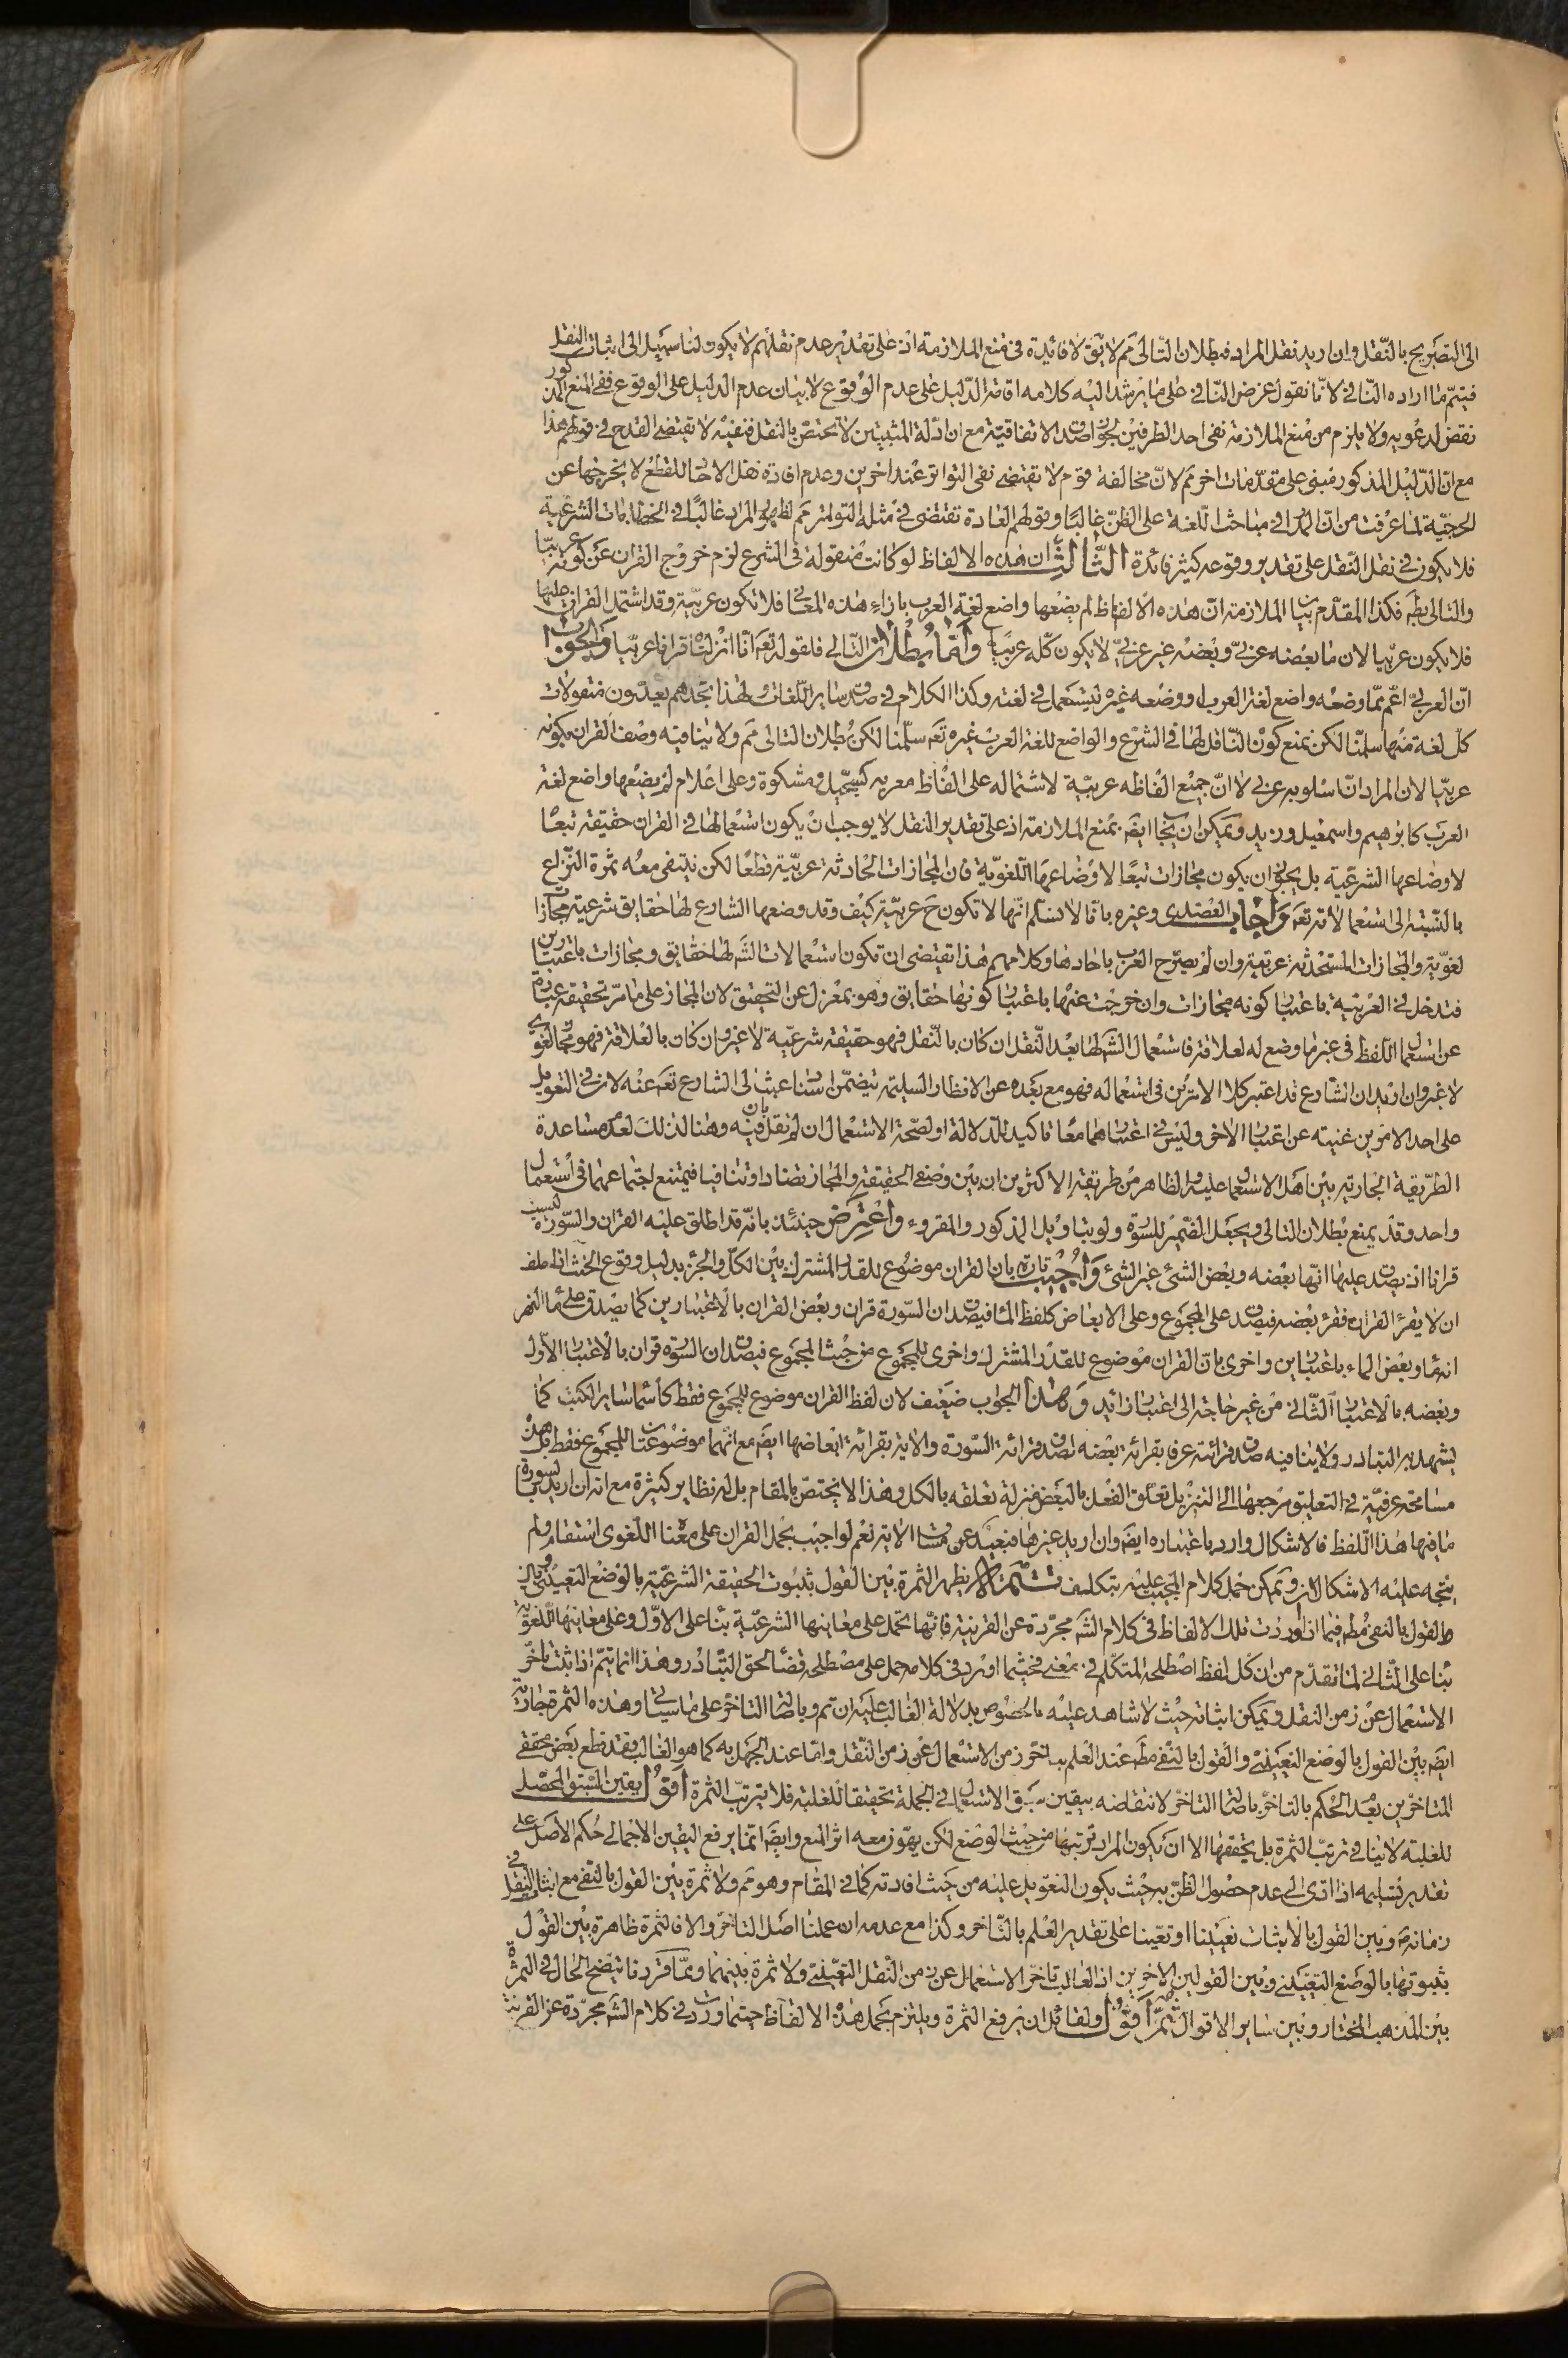 الى التصريح بالنقل وان اريد نقل المراد فبطلان التالى مم لا يق لا فائدة فى منع الملازمة اذ على تقدير عدم نقلهم لا يكون لنا سبيل الى اثبات النقل
فيتم ما اراده النافى لانا نقول غرض النافى على ما يرشد اليه كلامه اقامة الدليل على عدم الوقوع لا بيان عدم الدليل على الوقوع ففى المنع المذكور
نقض لدعويه ولا يلزم من منع الملازمة نفى احد الطرفين لجواز صدق الاتفاقية مع ان ادلة المثبتين لا تختص بالنقل فنفيه لا يقتضى القدح فى قولهم هذا
مع ان الدليل المذكور مبنى على مقدمات اخر مم لان مخالفة قوم لا يقتضى نفى التواتر عند اخرين وعدم افادة نقل الاحاد للقطع لا يخرجها عن
الحجية لما عرفت من ان المدار فى مباحث اللغة على الظن غالبا وقولهم العادة تقتضى فى مثله التواتر مم لظهور المراد غالبا فى الخطابات الشرعية
فلا يكون فى نقل النقل على تقدير وقوعه كثير فائدة الثالث ان هذه الالفاظ لو كانت منقولة فى الشرع لزم خروج القران عن كونه عربيا
والتالى بط فكذا المقدم بيان الملازمة ان هذه الالفاظ لم يضعها واضع لغة العرب بازاء هذه المعانى فلا تكون عربية وقد اشتمل القران عليها
فلا يكون عربيا لان ما بعضه عربى وبعضه غير عربى لا يكون كله عربيا واما بطلان التالى فلقوله تعم انا انزلناه قرانا عربيا والجواب
ان العربى اعم مما وضعه واضع لغة العرب او وضعه غيره ليستعمل فى لغته وكذا الكلام فى صدق ساير اللغات ولهذا تجدهم يعدون منقولات
كل لغة منها سلمنا لكن نمنع كون الناقل لها فى الشرع والواضع للغة العرب غيره تعم سلمنا لكن بطلان التالى مم ولا ينافيه وصف القران بكونه
عربيا لان المراد ان اسلوبه عربى لا ان جميع الفاظه عربية لاشتماله على الفاظ معربه كسجيل ومشكوة وعلى اعلام لم يضعها واضع لغة
العرب كابرهيم واسمعيل وزيد ويمكن ان يجاب ايضا بمنع الملازمة اذ على تقدير النقل لا يوجب ان يكون استعمالها فى القران حقيقة تبعا
لاوضاعها الشرعية بل يجوز ان يكون مجازات تبعا لاوضاعها اللغوية فان المجازات الحادثة عربية قطعا لكن ينتفى معه ثمرة النزاع
بالنسبة الى استعمالاته تعم واجاب العضدى وغيره بانا لا نسلم انها لا تكون ح عربية كيف وقد وضعها الشارع لها حقايق شرعية مجازات
لغوية والمجازات المستحدثة عربية وان لم يصرح العرب باحادها وكلامهم هذا يقتضى ان تكون استعمالات الشم لها حقايق ومجازات باعتبارين
فتدخل فى العربية باعتبار كونه مجازات وان خرجت عنها باعتبار كونها حقايق وهو بمعزل عن التحقيق لان المجاز على ما مر تحقيقه عبارة
عن استعمال اللفظ فى غير ما وضع له لعلاقة فاستعمال الشم لها بعد النقل ان كان بالنقل فهو حقيقة شرعية لا غير وان كان بالعلاقة فهو مجاز لغوى
لا غير وان اريد ان الشارع قد اعتبر كلا الامرين فى استعماله فهو مع بعده عن الانظار السليمة يتضمن اسناد عبث الى الشارع تعم عنه لان فى التعويل
على احد الامرين غنيته عن اعتبار الاخر وليس فى اعتبارهما معا تاكيد للدلالة او لصحة الاستعمال ان لم نقل بان فيه وهنا لذلك لعدم مساعدة
الطريقة الجارية بين اهل الاستعمال عليه والظاهر من طريقة الاكثرين ان بين وضعى الحقيقة والمجاز تضادا وتنافيا فيمتنع اجتماعهما فى استعمال
واحد وقد يمنع بطلان التالى ويجعل الضمير للسورة ولو بتاويل المذكور والمقروء واعترض حينئذ بانه قد اطلق عليه القران والسورة ليست
قرانا اذ يصدق عليها انها بعضه وبعض الشئ غير الشئ واجيب تارة بان القران موضوع للقدر المشترك بين الكل والجزء بدليل وقوع الحنث اذا حلف
ان لا يقرء القران فقرء بعضه فيصدق على المجموع وعلى الابعاض كلفظ الماء فيصدق ان السورة قران وبعض القران بالاعتبارين كما يصدق على ماء النهر
انه ماء وبعض الماء باعتبارين واخرى بان القران موضوع للقدر المشترك واخرى للمجموع من حيث المجموع فيصدق ان السورة قران بالاعتبار الاول
وبعضه بالاعتبار الثانى من غير حاجة الى اعتبار زائد وهذا الجواب ضعيف لان لفظ القران موضوع للمجموع فقط كاسماء ساير الكتب كما
يشهد به التبادر ولا ينافيه صدق قرائته عرفا بقرائة بعضه لصدق قرائة السورة والاية بقرائة ابعاضها ايضا مع انهما موضوعتان للمجموع فقط بل هذه
مسامحة عرفية فى التعليق مرجعها الى التنزيل تعلق الفعل بالبعض منزلة تعلقه بالكل وهذا لا يختص بالمقام بل له نظاير كثيرة مع انه ان اريد بالسورة
ما فيها هذا اللفظ فالاشكال وارد باعتباره ايضا وان اريد غيرها فبعيد عن مساق الاية نعم لو اجيب بحمل القران على معناه اللغوى استقام ولم
يتجه عليه الاشكال المزبور ويمكن حمل كلام المجيب عليه بتكلف تتمة لا يظهر الثمرة بين القول بثبوت الحقيقة الشرعية بالوضع التعيينى
والقول بالنفى مطم فيما اذا وردت تلك الالفاظ فى كلام الشم مجردة عن القرينة فانها تحمل على معانيها الشرعية بناء على الاول وعلى معانيها اللغوية
بناء على الثانى لما تقدم من ان كل لفظ اصطلحه المتكلم فى بمعنى فحيثما اورد فى كلامه حمل على مصطلحه قضاء لحق التبادر وهذا انما يتم اذا ثبت تاخر
الاستعمال عن زمن النقل ويمكن اثباته حيث لا شاهد عليه بالخصوص بدلالة الغالب عليه ان تم وباصالة التاخر على ما سياتى وهذه الثمرة جارية
ايضا بين القول بالوضع التعينى والقول بالنفى مطم عند العلم بتاخر زمن الاستعمال عن زمن النقل واما عند الجهل به كما هو الغالب فقد قطع بعض محققى
المتاخرين بعد الحكم بالتاخر باصالة التاخر لانتقاضه بيقين سبق الاستعمال فى الجملة تحقيقا للغلبة فلا يترتب الثمرة اقول يقين السبق المحصل
للغلبة لا ينافى ترتب الثمرة بل يحققها الا ان يكون المراد ترتبها من حيث الوضع لكن يهون معه اثر المنع وايضا انما يرفع اليقين الاجمالى حكم الاصل على
تقدير تسليمه اذا ادى الى عدم حصول الظن به حيث يكون التعويل عليه من حيث افادته كما فى المقام وهو مم ولا ثمرة بين القول بالنفى مع اثبات النقل فى
زمانهم وبين القول بالاثبات تعيينا او تعينا على تقدير العلم بالتاخر وكذا مع عدمه ان عملنا اصل التاخر والا فالثمرة ظاهرة بين القول
بثبوتها بالوضع التعيينى وبين القولين الاخرين اذ الغالب تاخر الاستعمال عن زمن النقل التعيينى ولا ثمرة بينهما ومما قررنا يتضح الحال فى الثمرة
بين المذهب المختار وبين ساير الاقوال ثم اقول ولقائل ان يرفع الثمرة ويلتزم بحمل هذه الالفاظ حيثما وردت فى كلام الشم مجردة عن القرينة